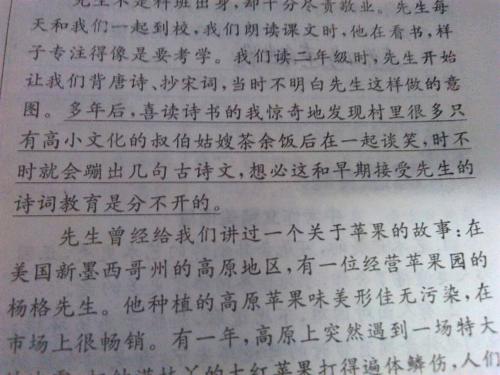 先生不是科班出身，却十分尽责敬业。先生每
天和我们一起到校，我们朗读课文时，他在看书，样
子专注得像是要考学。我们读二年级时，先生开始
让我们背唐诗、抄宋词，当时不明白先生这样做的意
图。多年后，喜读诗书的我惊奇地发现村里很多只
有高小文化的叔伯姑嫂茶余饭后在一起谈笑，时不
时就会蹦出几句古诗文，想必这和早期接受先生的
诗词教育是分不开的。
先生曾经给我们讲过一个关于苹果的故事：在
美国新墨西哥州的高原地区，有一位经营苹果园的
杨格先生。他种植的高原苹果味美形佳无污染，在
市场上很畅销。有一年，高原上突然遇到一场特大
大红苹果打得遍体鳞伤，人们